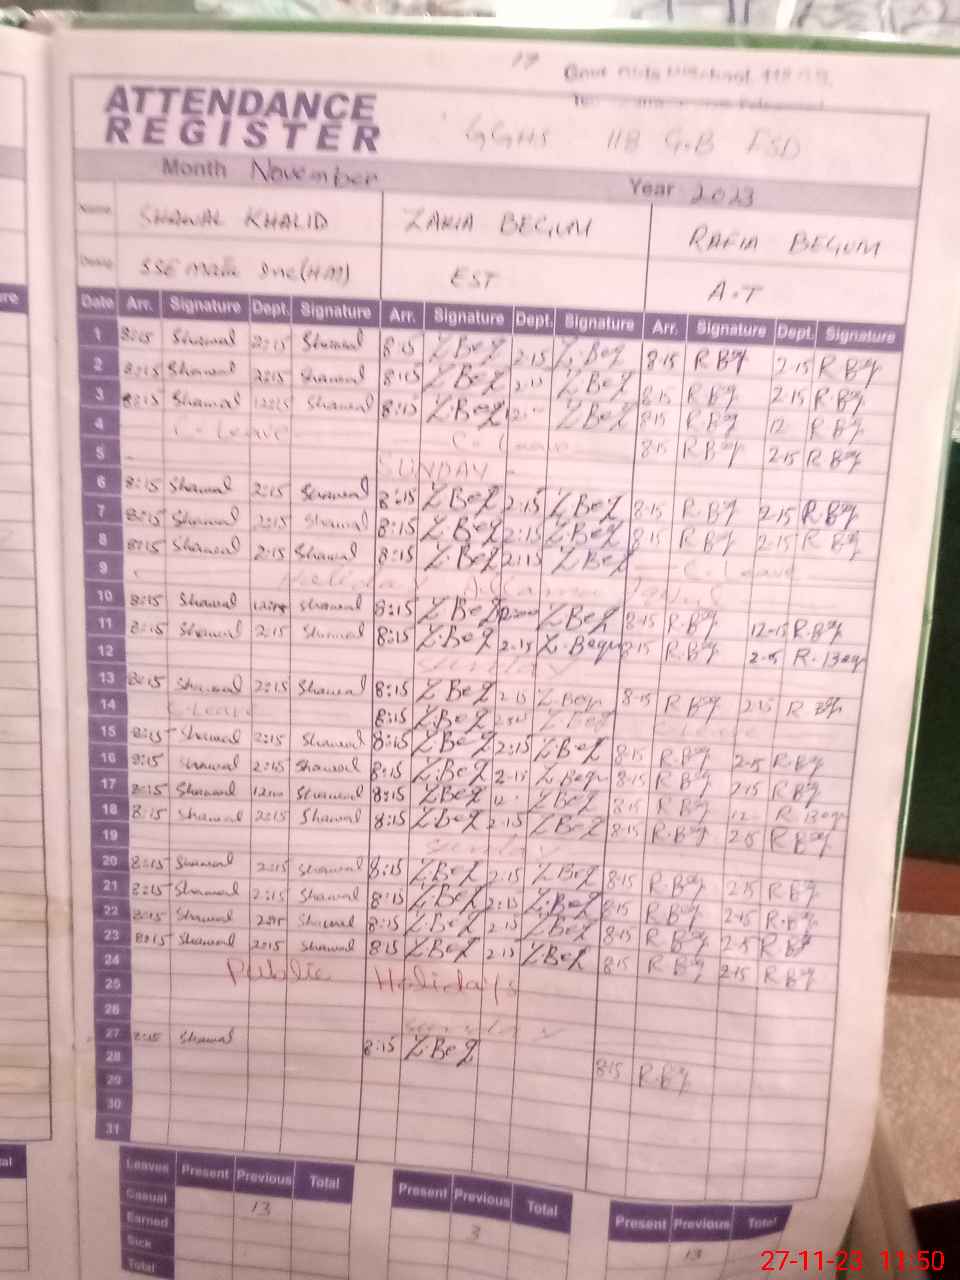 17
ATTENDANCE
REGISTER
GGHS 118 G.B FSD
Month November Year 2023
Name SHAWAL KHALID ZAKIA BEGUM RAFIA BEGUM
SSE Math Inc(HM) EST A.T
Date Arr. Signature Dept. Signature Arr. Signature Dept. Signature Arr. Signature Dept. Signature
1 8:15 Shawal 2:15 Shawal 8:15 Z.Beg 2:15 Z.Beg 8:15 R Beg 2:15 R Beg
2 8:15 Shawal 2:15 Shawal 8:15 Z Beg 2:15 Z Beg 8:15 R Beg 2:15 R Beg
3 8:15 Shawal 12:15 Shawal 8:15 Z.Beg 12 Z Beg 8:15 R Beg 12 R Beg
4 C-Leave C-Leave 8:15 R Beg 2:15 R Beg
5 SUNDAY
6 8:15 Shawal 2:15 Shawal 8:15 Z Beg 2:15 Z Beg 8:15 R.Beg 2:15 R Beg
7 8:15 Shawal 2:15 Shawal 8:15 Z Beg 2:15 Z.Beg 8:15 R Beg 2:15 R Beg
8 8:15 Shawal 2:15 Shawal 8:15 Z Beg 2:15 Z Beg C-Leave
9 Holiday
10 8:15 Shawal Shawal 8:15 Z Beg Z Beg 8:15 R.Beg 12-15 R.Beg
11 8:15 Shawal 2:15 Shawal 8:15 Z.Beg 2.15 Z.Begum 8:15 R.Beg 2-15 R.Begu
12 Sunday
13 8:15 Shawal 2:15 Shawal 8:15 Z Beg 2:15 Z Begu 8:15 R Beg 2:15 R Beg
14 C-Leave 8:15 Z.Beg Z Beg
15 8:15 Shawal 2:15 Shawal 8:15 Z Beg 2:15 Z.Beg 8:15 R.Beg 2:15 R.Beg
16 8:15 Shawal 2:15 Shawal 8:15 Z.Beg 2:15 Z Begu 8:15 R.Beg 2:15 R Beg
17 8:15 Shawal 12:00 Shawal 8:15 Z Beg 12 Z Beg 8:15 R Beg 12 R Begu
18 8:15 Shawal 2:15 Shawal 8:15 Z.Beg 2:15 Z Beg 8:15 R.Beg 2:15 R Beg
19 Sunday
20 8:15 Shawal 2:15 Shawal 8:15 Z.Beg 2:15 Z Beg 8:15 R.Beg 2:15 R Beg
21 8:15 Shawal 2:15 Shawal 8:15 Z.Beg 2:15 Z.Beg 8:15 R Beg 2:15 R.Beg
22 8:15 Shawal 2:15 Shawal 8:15 Z.Beg 2:15 Z Beg 8:15 R Beg 2:15 R Beg
23 8:15 Shawal 2:15 Shawal 8:15 Z Beg 2:15 Z.Beg 8:15 R Beg 2:15 R Beg
24 Public Holidays
25
26 Sunday
27 8:15 Shawal 8:15 Z.Beg 8:15 R.Beg
28
29
30
31
Leaves Present Previous Total Present Previous Total Present Previous Total
Casual 13 3 13
Earned
Sick
Total
27-11-23 11:50